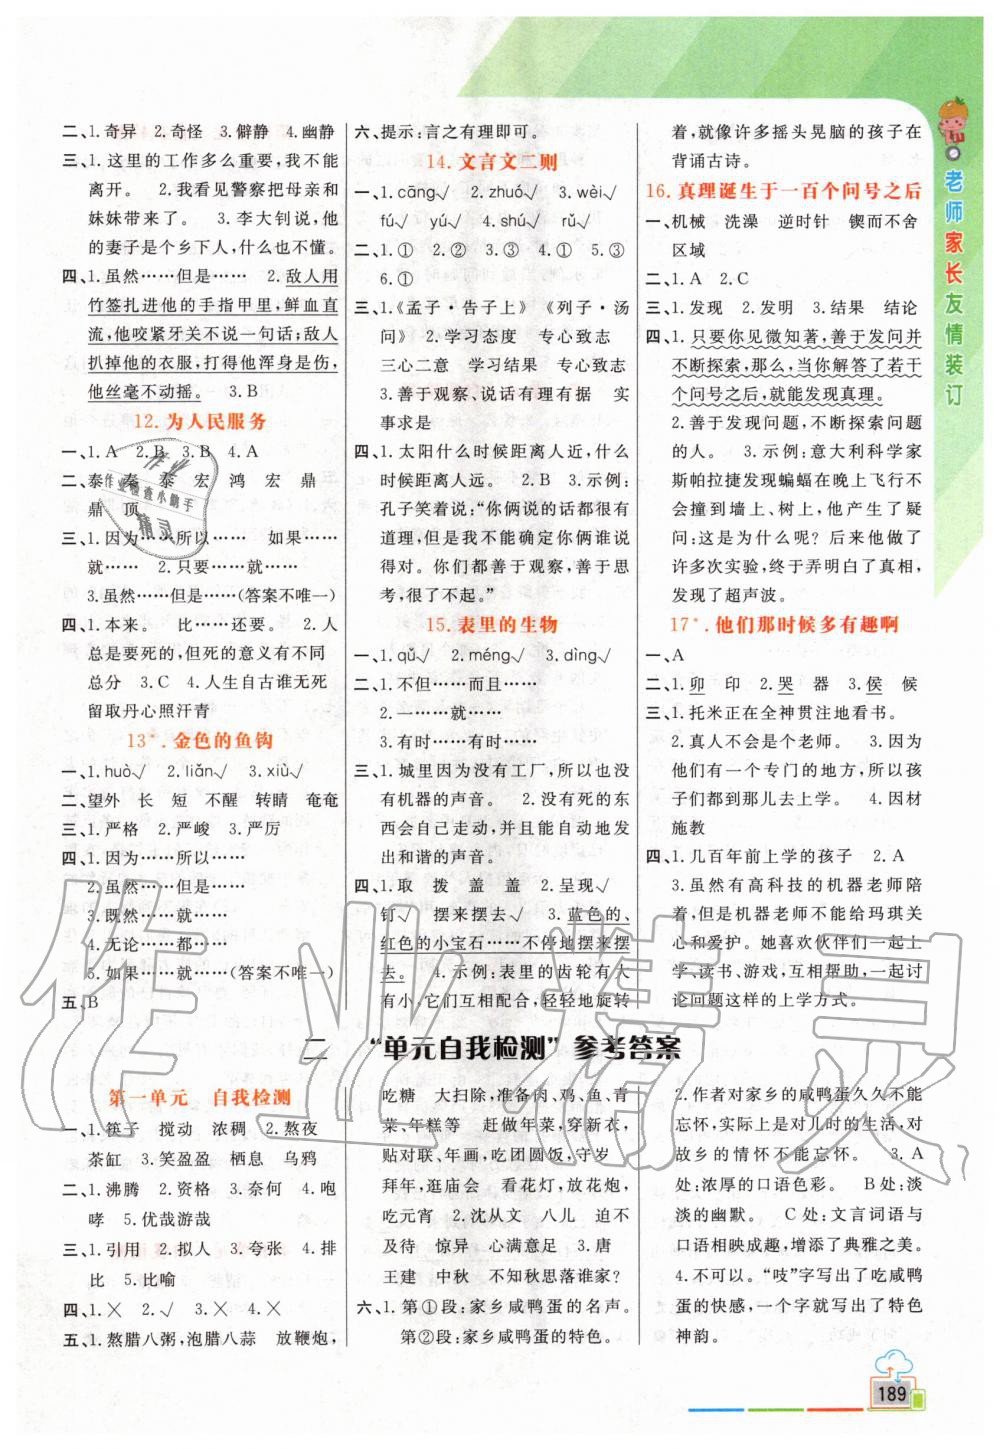 二、1.奇异 2.奇怪 3.僻静 4.幽静
三、1.这里的工作多么重要,我不能
离开。 2.我看见警察把母亲和
妹妹带来了。 3.李大钊说,他
的妻子是个乡下人,什么也不懂。
四、1.虽然……但是…… 2.敌人用
竹签扎进他的手指甲里,鲜血直
流,他咬紧牙关不说一句话;敌人
扒掉他的衣服,打得他浑身是伤,
他丝毫不动摇。 3.B
12.为人民服务
一、1.A 2.B 3.B 4.A
二、泰 秦 泰 宏 鸿 宏 鼎
鼎 顶
三、1.因为……所以…… 如果……
就…… 2.只要……就……
3.虽然……但是……(答案不唯一)
四、1.本来。 比……还要。 2.人
总是要死的,但死的意义有不同
总分 3.C 4.人生自古谁无死
留取丹心照汗青
13*.金色的鱼钩
一、1.huò√ 2.liǎn√ 3.xiù√
二、望外 长 短 不醒 转睛 奄奄
三、1.严格 2.严峻 3.严厉
四、1.因为……所以……
2.虽然……但是……
3.既然……就……
4.无论……都……
5.如果……就……(答案不唯一)
五、B
六、提示:言之有理即可。
14.文言文二则
一、1.cāng√ 2.zhuó√ 3.wèi√
fú√ yú√ 4.shú√ rǔ√
二、1.① 2.② 3.③ 4.③ 5.①
6.①
三、1.《孟子·告子上》《列子·汤
问》 2.学习态度 专心致志
三心二意 学习结果 专心致志
3.善于观察、说话有理有据 实
事求是
四、1.太阳什么时候距离人近,什么
时候距离人远。 2.B 3.示例:
孔子笑着说:“你俩说的话都很有
道理,但我确实不知道你俩谁说
得对。你们都善于观察,善于思
考,很了不起。”
15.表里的生物
一、1.qǔ√ 2.méng√ 3.dìng√
二、1.不但……而且……
2.一……就……
3.有时……有时……
三、1.城里因为没有工厂,所以也没
有机器的声音。 2.没有死的东
西会自己走动,并且能自动地发
出和谐的声音。
四、1.取 拨 盖 盖 2.呈现√
钉√ 摆来摆去√ 3.蓝色的、
红色的小宝石……不停地摆来摆
去。 4.示例:表里的齿轮有大
有小,它们互相配合,轻轻地旋转
着,就像许多摇头晃脑的孩子在
背诵古诗。
16.真理诞生于一百个问号之后
一、机械 洗澡 逆时针 锲而不舍
区域
二、1.A 2.C
三、1.发现 2.发明 3.结果 结论
四、1.只要你见微知著,善于发问并
不断探索,那么,当你解答了若干
个问号之后,就能发现真理。
2.善于发现问题,不断探索问题
的人。 3.示例:意大利科学家
斯帕拉捷发现蝙蝠在晚上飞行不
会撞到墙上、树上,他产生了疑
问:这是为什么呢?后来他做了
许多次实验,终于弄清了真相,
发现了超声波。
17*.他们那时候多有趣啊
一、A
二、1.卯 印 2.哭 器 3.侯 候
三、1.托米正在全神贯注地看书。
2.真人不会是个老师。 3.因为
他们有一个专门的地方,所以孩
子们都到那儿去上学。 4.因材
施教
四、1.几百年前上学的孩子 2.A
3.虽然有高科技的机器老师陪
着,但是机器老师不能给玛琪关
心和爱护。她喜欢伙伴们一起上
学、读书、游戏,互相帮助,一起讨
论问题这样的上学方式。
二 “单元自我检测”参考答案
第一单元 自我检测
一、1.筷子 搅动 浓稠 2.熬夜
茶缸 3.笑盈盈 栖息 乌鸦
二、1.沸腾 2.资格 3.奈何 4.咆
哮 5.优哉游哉
三、1.引用 2.拟人 3.夸张 4.排
比 5.比喻
四、1.╳ 2.√ 3.╳ 4.╳
五、1.熬腊八粥,泡腊八蒜 放鞭炮,
吃糖 大扫除,准备肉、鸡、鱼、青
菜、年糕等 赶做年菜,穿新衣,
贴对联、年画,吃团圆饭,守岁
拜年,逛庙会 看花灯,放花炮,
吃元宵 2.沈从文 八儿 迫不
及待 惊异 心满意足 3.唐
王建 中秋 不知秋思落谁家?
六、1.第①段:家乡咸鸭蛋的名声。
第②段:家乡咸鸭蛋的特色。
2.作者对家乡的咸鸭蛋久久不能
忘怀,实际上是对儿时的生活,对
故乡的情怀不能忘怀。 3.A
处:浓厚的口语色彩。 B处:淡
淡的幽默。 C处:文言词语与
口语相映成趣,增添了典雅之美。
4.不可以。“吱”字写出了吃咸鸭
蛋的快感,一个字就写出了特色
神韵。
老师家长友情装订
189
作业
作业检查小助手
精灵
作业精灵